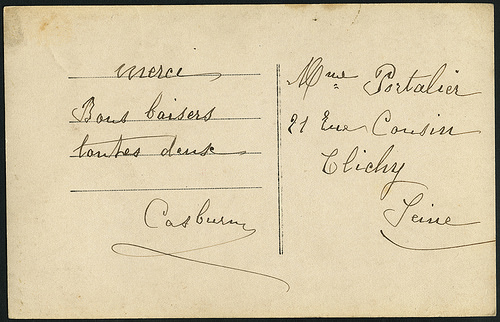 merci
Bons baisers
toutes deux
Casburn
Mme Portalier
21 Rue Cousin
Clichy
Seine